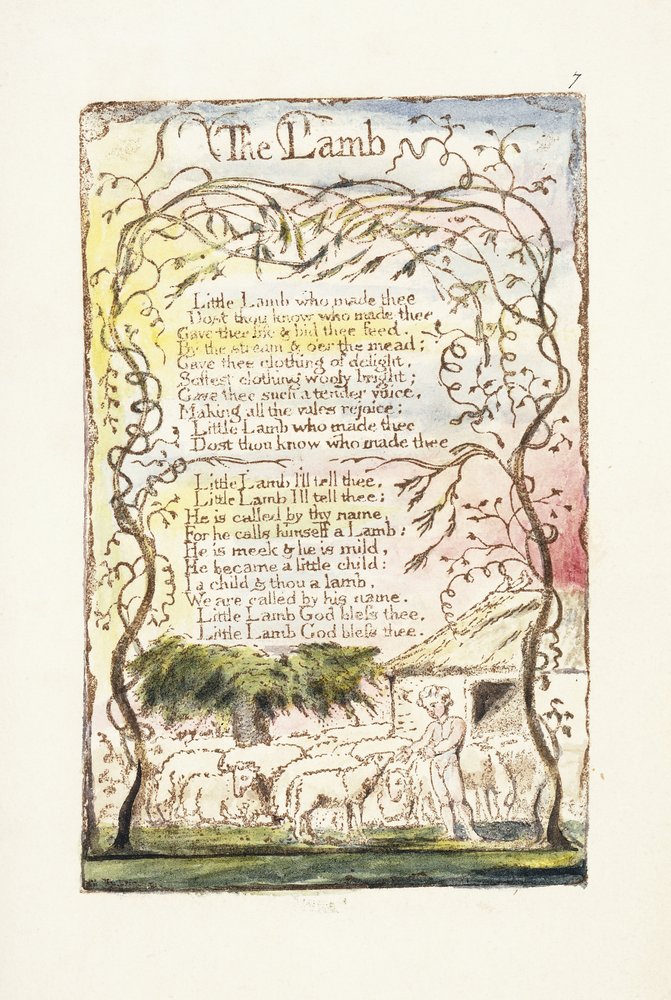 7
The Lamb
Little Lamb who made thee
Dost thou know who made thee
Gave thee life & bid thee feed.
By the stream & o'er the mead;
Gave thee clothing of delight,
Softest clothing wooly bright;
Gave thee such a tender voice,
Making all the vales rejoice:
Little Lamb who made thee
Dost thou know who made thee
Little Lamb I'll tell thee,
Little Lamb I'll tell thee:
He is called by thy name,
For he calls himself a Lamb:
He is meek & he is mild,
He became a little child:
I a child & thou a lamb,
We are called by his name.
Little Lamb God bleſs thee.
Little Lamb God bleſs thee.